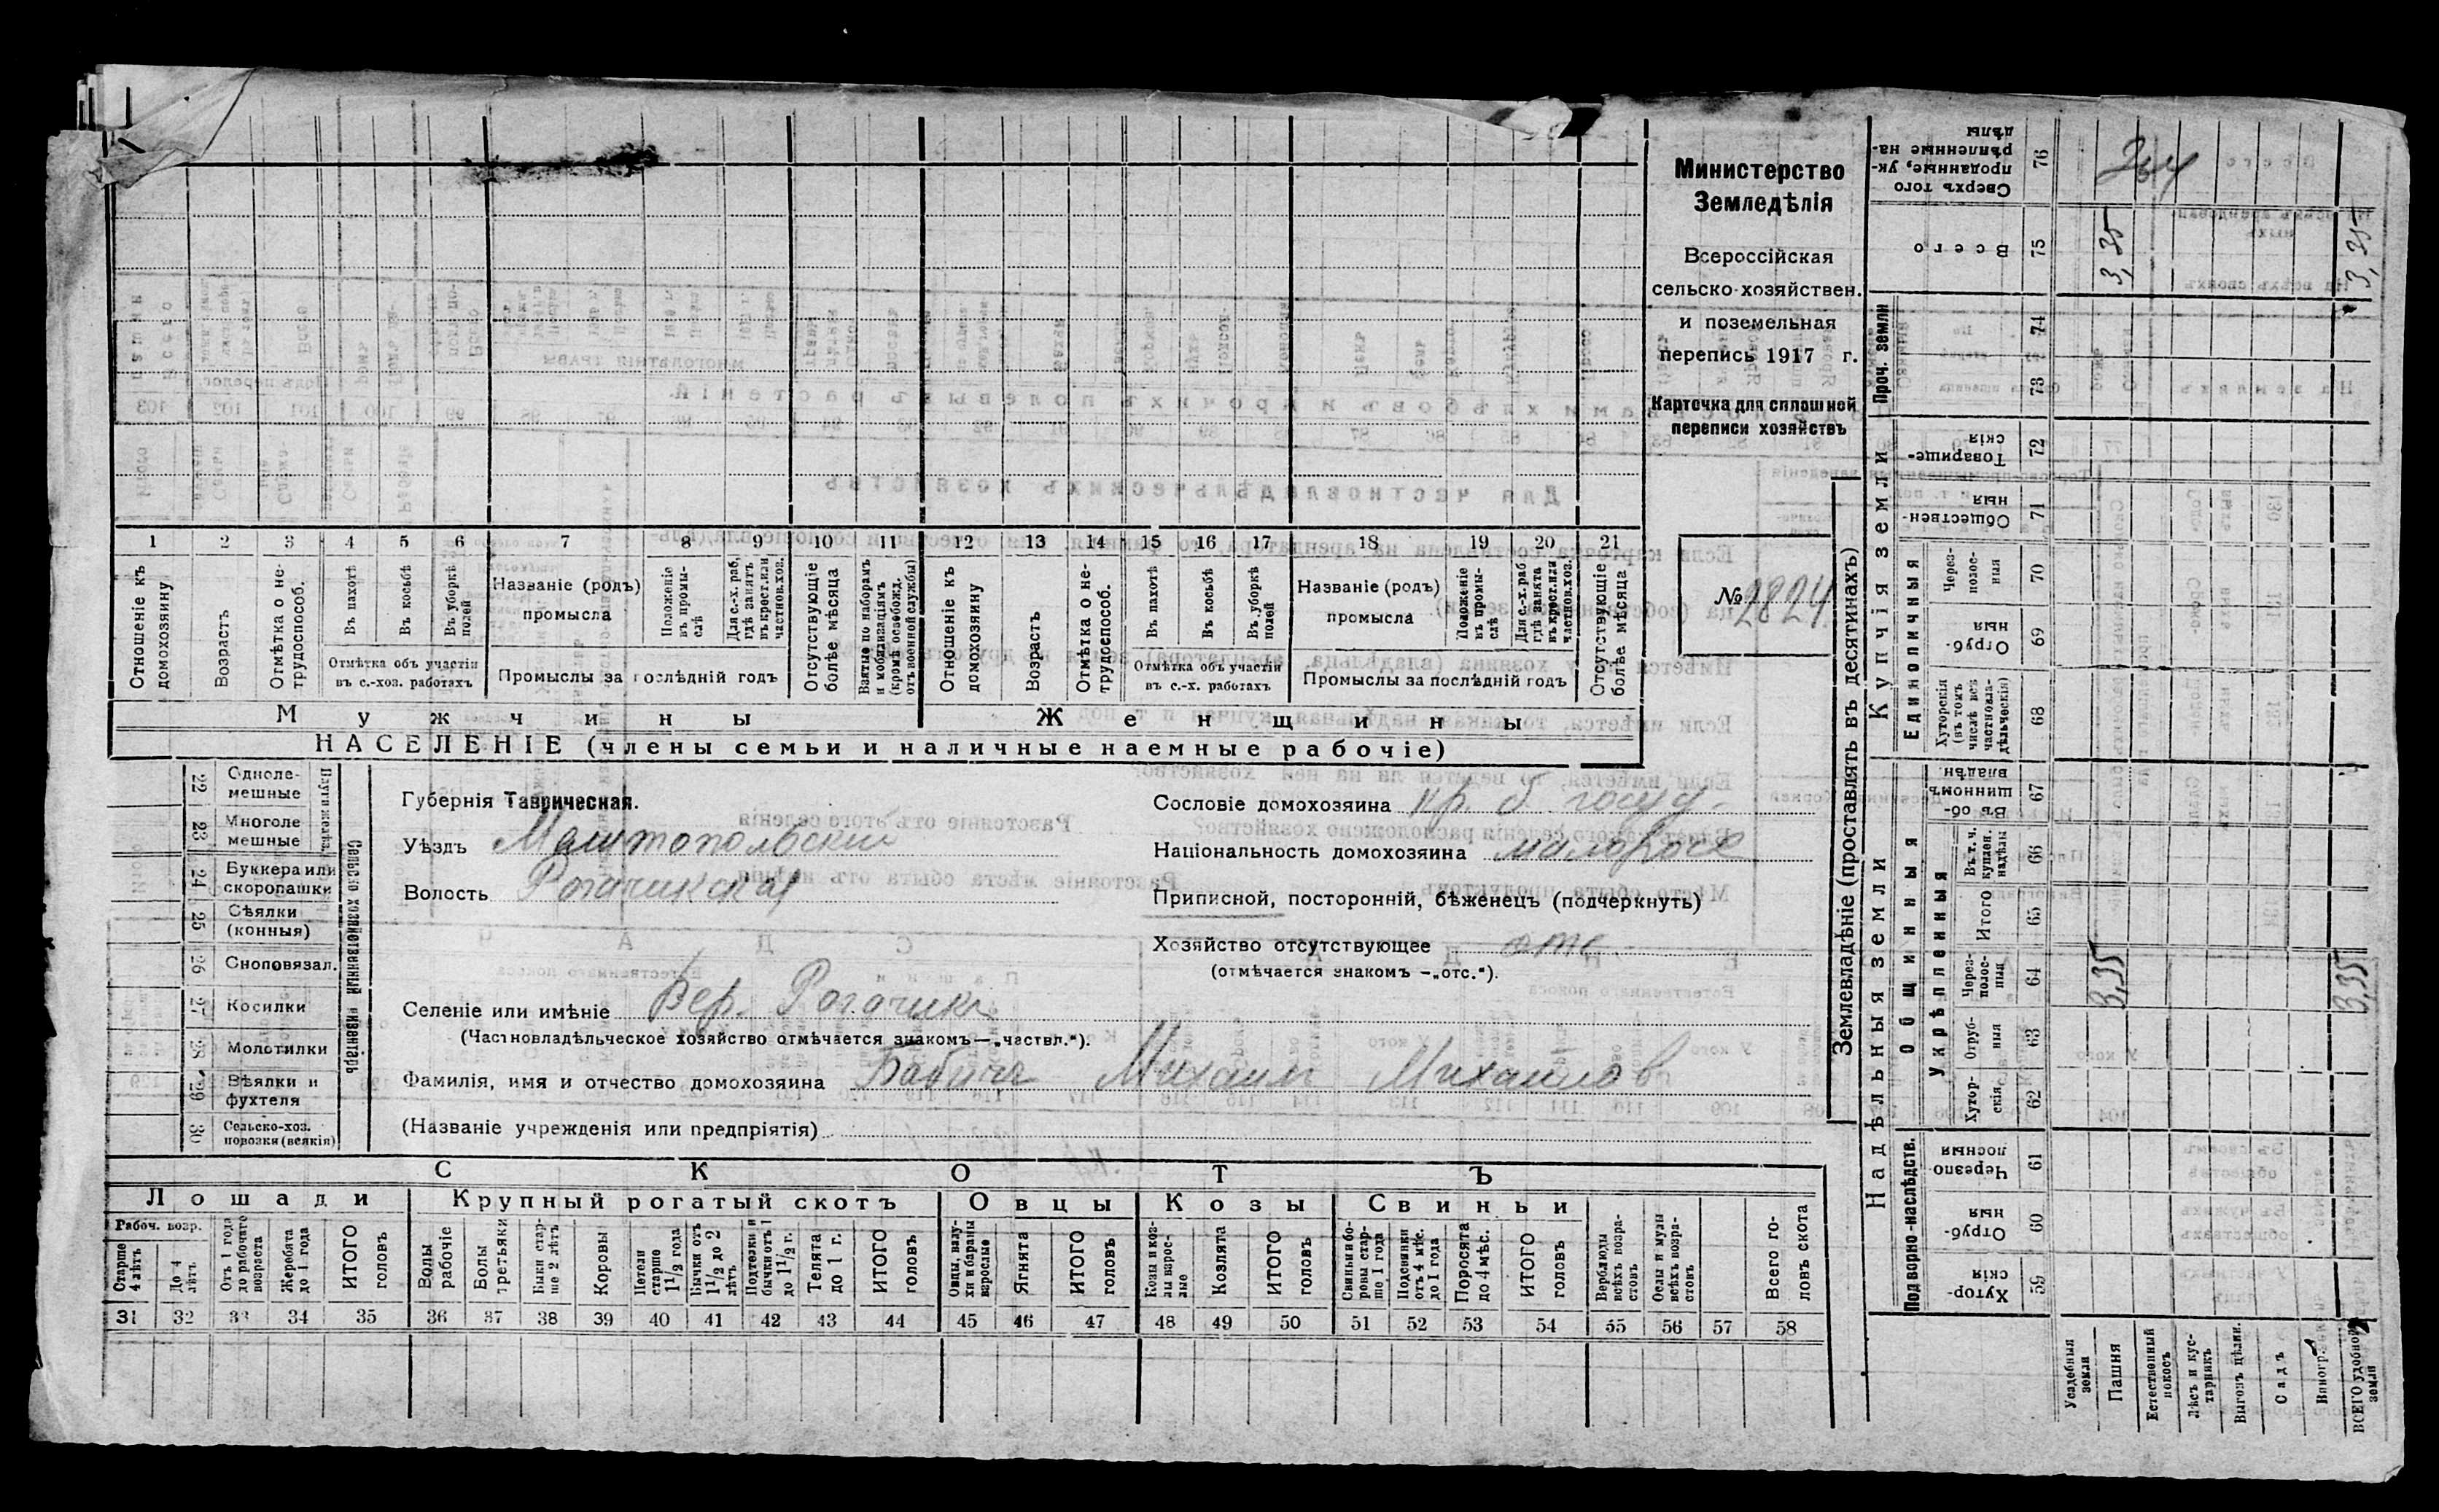 Министерство
Земледѣлія
Всероссійская
сельско-хозяйствен.
и поземельная
перепись 1917 г.
Карточка для сплошной
переписи хозяйствъ
№ 2824
1 2 3 4 5 6 7 8 9 10 11 12 13 14 15 16 17 18 19 20 21
Отношеніе къ домохозяину
Возрастъ
Отмѣтка о нетрудоспособ.
Въ пахотѣ
Въ косьбѣ
Въ уборкѣ полей
Отмѣтка объ участіи
въ с.-хоз. работахъ
Названіе (родъ)
промысла
Положеніе въ промыслѣ
Для с.-х. раб, гдѣ занятъ въ крест. или частнов. хоз.
Промыслы за послѣдній годъ
Отсутствующіе болѣе мѣсяца
Взятые по наборамъ и мобилизаціямъ (кромѣ освобожд. отъ военной службы)
Отношеніе къ домохозяину
Возрастъ
Отмѣтка о не-трудоспособ.
Въ пахотѣ
Въ косьбѣ
Въ уборкѣ полей
Отмѣтка объ участіи
въ с.-х. работахъ
Названіе (родъ)
промысла
Положеніе въ промыслѣ
Для с.-х. раб. гдѣ занята въ крест. или частнов. хоз.
Промыслы за послѣдній годъ
Отсутствующіе болѣе мѣсяца
Мужчины
Женщины
НАСЕЛЕНІЕ (члены семьи и наличные наемные рабочіе)
Сельско хозяйственный инвентарь
22 Одноле-мешные
23 Многоле мешные
24 Буккера или скоропашки
25 Сѣялки (конныя)
26 Сноповязал.
27 Косилки
28 Молотилки
29 Вѣялки и фухтеля
30 Сельско-хоз. повозки (всякія)
Губернія Таврическая.
Уѣздъ Мелитопольский
Волость Рогачикская
Сословіе домохозяина кр. б. госуд.
Національность домохозяина малоросс
Приписной, посторонній, бѣженецъ (подчеркнуть)
Хозяйство отсутствующее отс.
(отмѣчается знакомъ —„отс.“).
Селеніе или имѣніе Вер. Рогачик
(Частновладѣльческое хозяйство отмѣчается знакомъ—„частвл.“).
Фамилія, имя и отчество домохозяина Бабич Михаил Михайлов
(Названіе учрежденія или предпріятія)
СКОТЪ
Лошади
Крупный рогатый скотъ
Овцы
Козы
Свиньи
Рабоч. возр.
Старше 4 лѣтъ
До 4 лѣтъ
Отъ 1 года до рабочаго возраста
Жеребята до 1 года
ИТОГО головъ
Волы рабочіе
Волы третьяки
Быки стар-ше 2 лѣтъ
Коровы
Нетели старше 1 1/2 года
Бычки отъ 1 1/2 до 2 лѣтъ
Подтелки и бычки отъ 1 до 1 1/2 г.
Телята до 1 г.
ИТОГО головъ
Овцы, валу-хи и бараны взрослые
Ягнята
ИТОГО головъ
Козы и коз-лы взрос-лые
Козлята
ИТОГО головъ
Свиньи и бо-ровы стар-ше 1 года
Подсвинки отъ 4 мѣс. до 1 года
Поросята до 4 мѣс.
ИТОГО головъ
Верблюды всѣхъ возра-стовъ
Ослы и мулы всѣхъ возра-стовъ
Всего го-ловъ скота
31 32 33 34 35 36 37 38 39 40 41 42 43 44 45 46 47 48 49 50 51 52 53 54 55 56 57 58
Землевладѣніе (проставлять въ десятинахъ)
Надѣльныя земли
Купчія земли
Проч. земли
Подворно-наслѣдств.
Общинныя
Укрѣпленныя
Единоличныя
Хутор-скія 59
Отруб-ныя 60
Черезпо лосныя 61
Хутор-скія 62
Отруб-ныя 63
Через-полос-ныя 64
Итого 65
Въ т. ч. куплен. надѣлы 66
Въ об-щинномъ владѣн. 67
Хуторскія (въ томъ числѣ всѣ частновла-дѣльческія) 68
Отруб-ныя 69
Через-полос-ныя 70
Обществен-ныя 71
Товарище-скія 72
73
74
Всего 75
Сверхъ того проданные, ук-рѣпленные на-дѣлы 76
Усадебныя земли
Пашня 3,35 3,35
Естественный покосъ
Лѣсъ и кус-тарникъ
Выгонъ цѣлин.
Садъ
Виногр.
ВСЕГО удобной земли 3,35 3,35